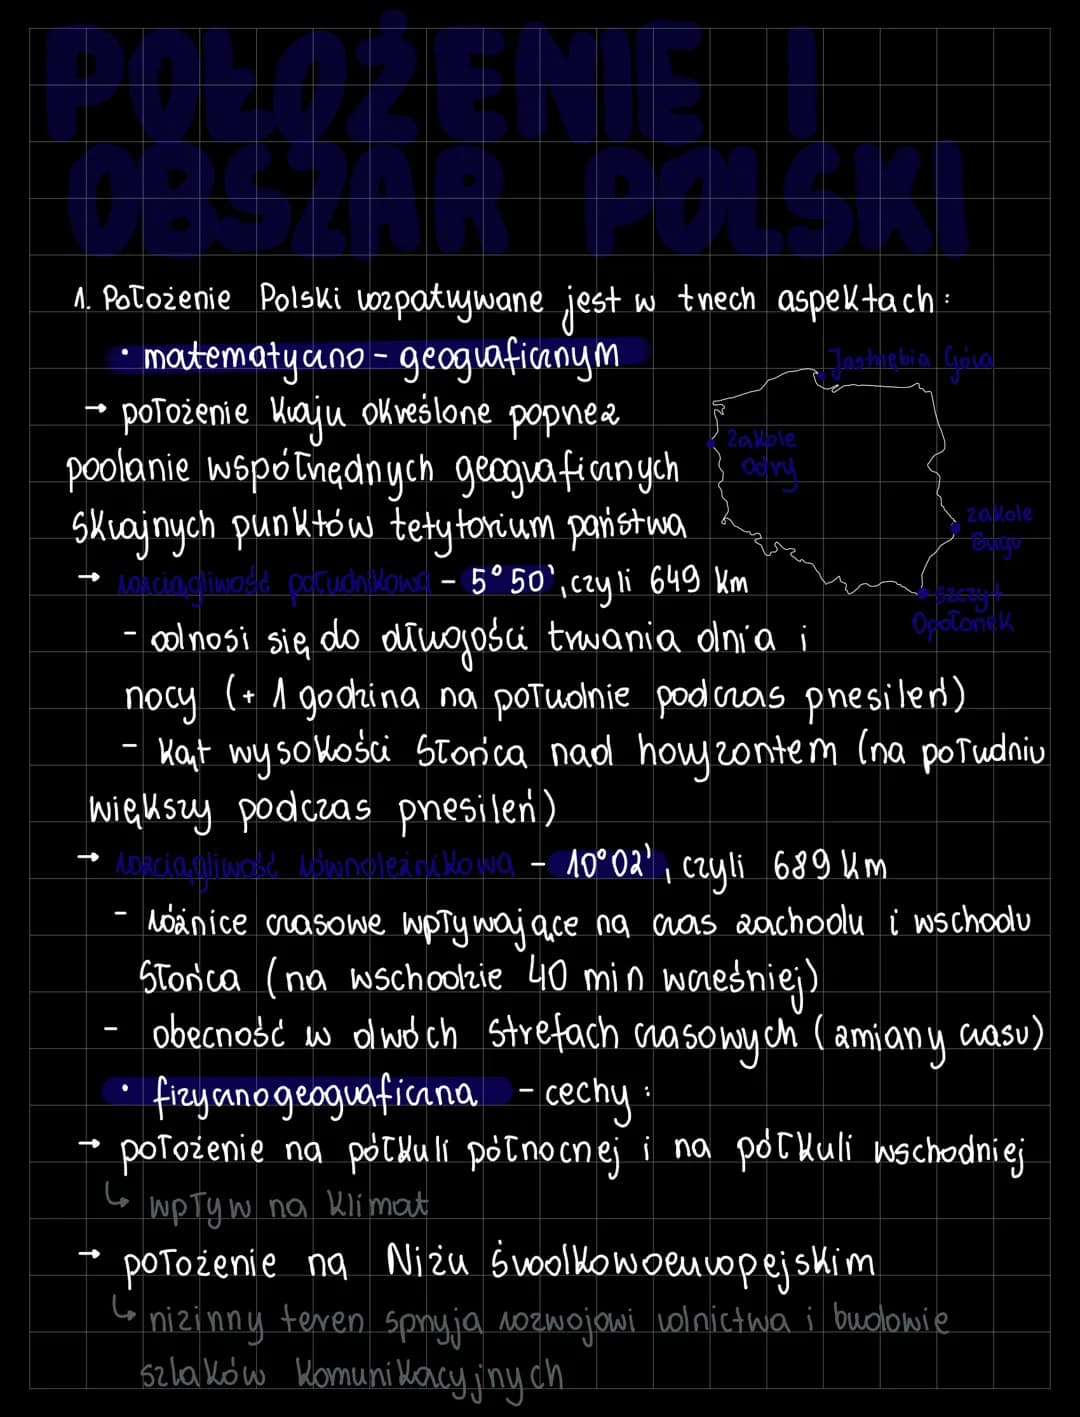 POŁOŻENIE I
OBSZAR POLSKI
1. Położenie Polski rozpatrywane jest w trzech aspektach:
• matematyczno - geograficznym
→ położenie kraju określone poprzez
podanie współrzędnych geograficznych
skrajnych punktów tetytorium państwa
→ rozciągliwość południkowa - 5°50', czyli 649 km
- odnosi się do długości trwania dnia i
nocy (+ 1 godzina na południe podczas przesileń)
- kąt wysokości Słońca nad horyzontem (na południu
większy podczas przesileń)
→ rozciągliwość równoleżnikowa - 10°02', czyli 689 km
- różnice czasowe wpływające na czas zachodu i wschodu
Słońca (na wschodzie 40 min wcześniej)
- obecność w dwóch strefach czasowych (zmiany czasu)
• fizycznogeograficzna - cechy:
→ położenie na półkuli północnej i na półkuli wschodniej
↳ wpływ na klimat
→ położenie na Niżu Środkowoeuropejskim
↳ nizinny teren sprzyja rozwojowi rolnictwa i budowie
szlaków komunikacyjnych
Jastrzębia Góra
Zakole
Odry
Zakole
Bugu
Szczyt
Opołonek